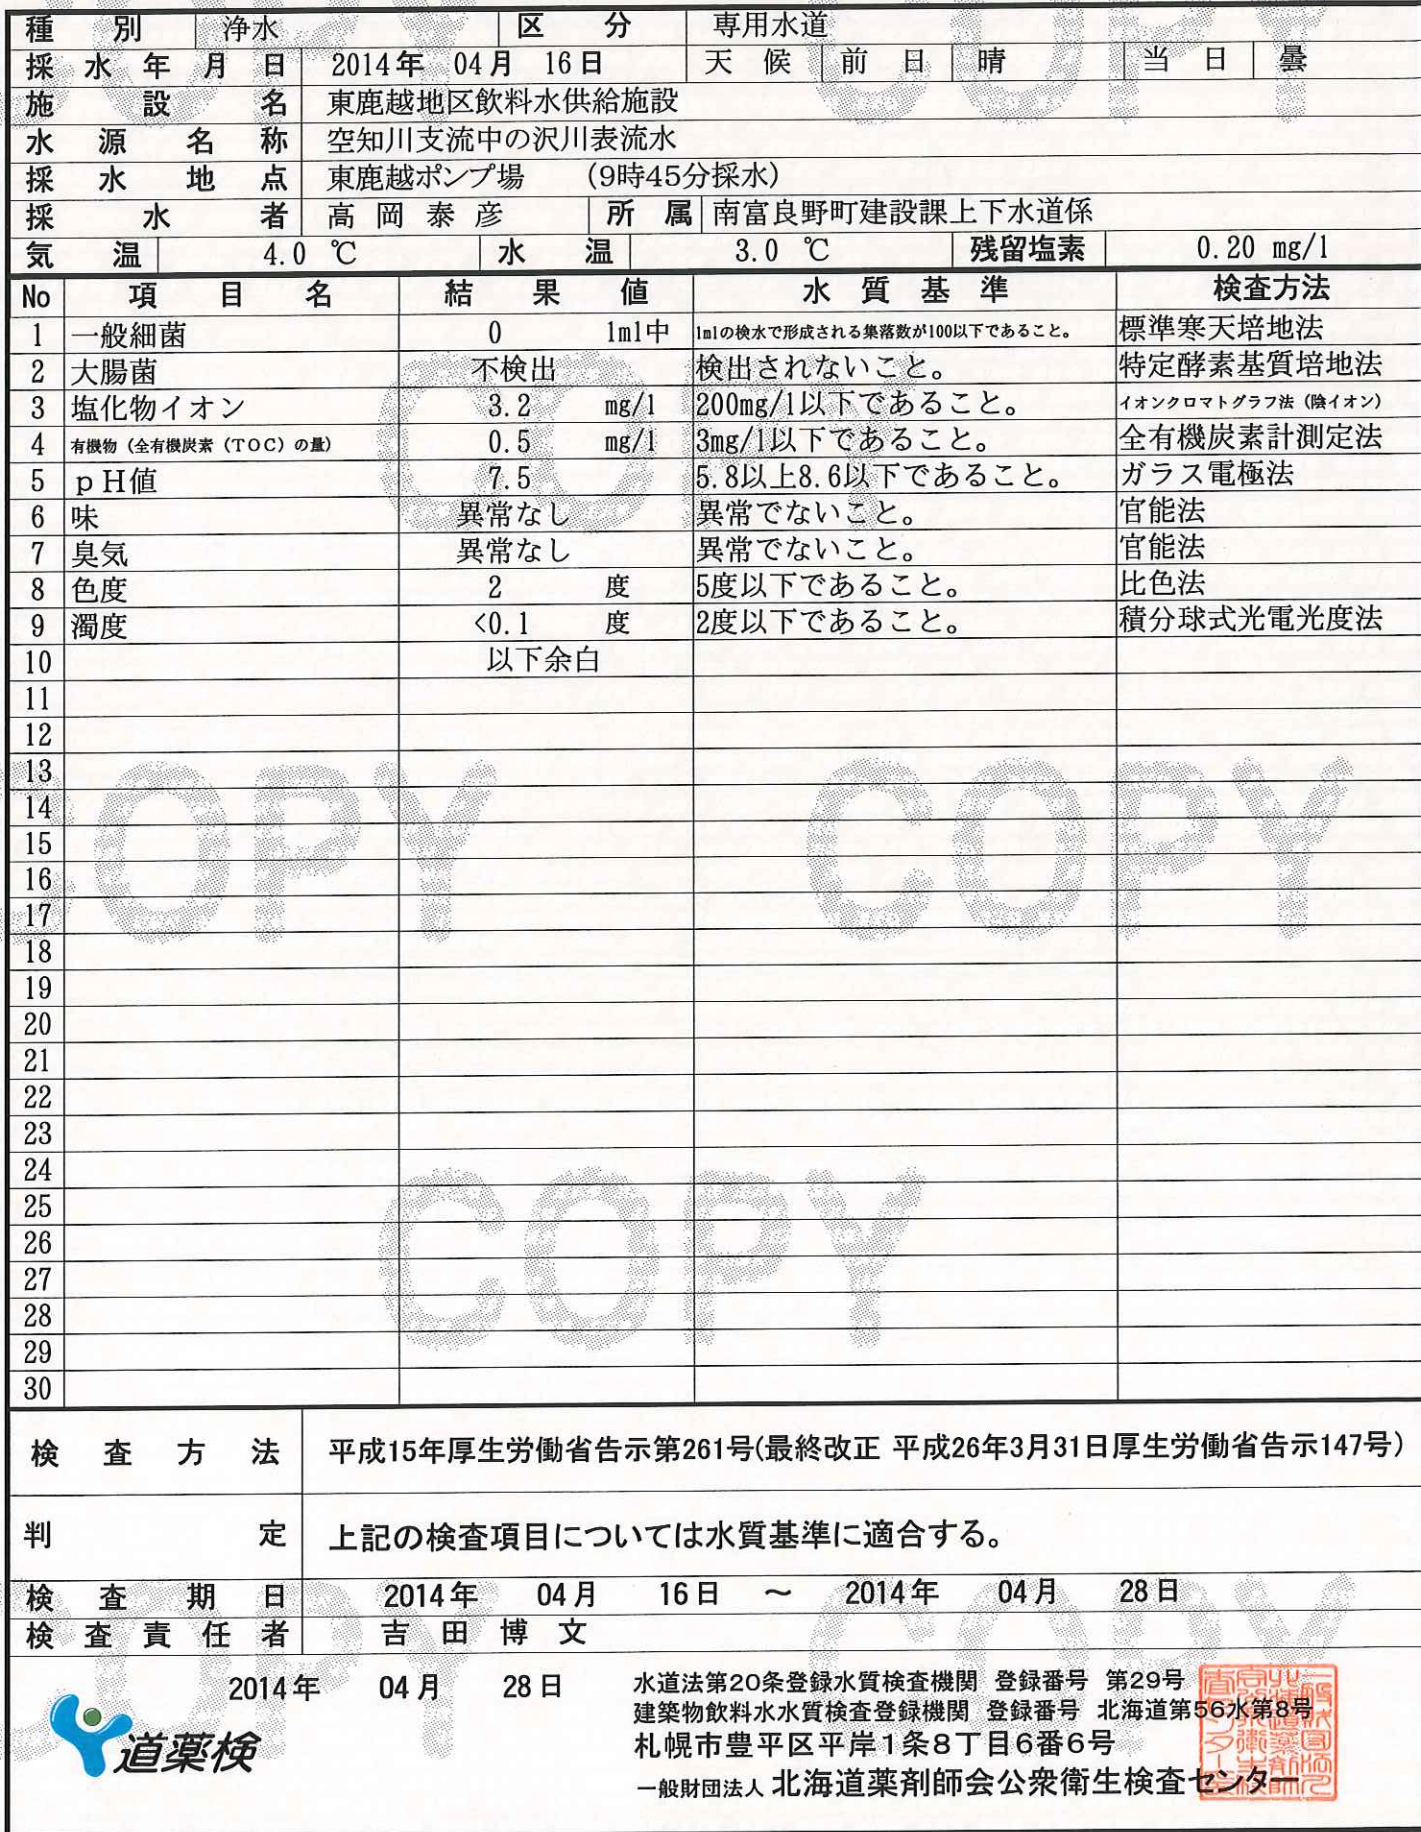 種別 浄水 区分 専用水道
採水年月日 2014年 04月 16日 天候 前日 晴 当日 曇
施設名 東鹿越地区飲料水供給施設
水源名称 空知川支流中の沢川表流水
採水地点 東鹿越ポンプ場 (9時45分採水)
採水者 高岡泰彦 所属 南富良野町建設課上下水道係
気温 4.0 ℃ 水温 3.0 ℃ 残留塩素 0.20 mg/l
No 項目名 結果値 水質基準 検査方法
1 一般細菌 0 1ml中 1mlの検水で形成される集落数が100以下であること。 標準寒天培地法
2 大腸菌 不検出 検出されないこと。 特定酵素基質培地法
3 塩化物イオン 3.2 mg/l 200mg/l以下であること。 イオンクロマトグラフ法（陰イオン）
4 有機物（全有機炭素（TOC）の量） 0.5 mg/l 3mg/l以下であること。 全有機炭素計測定法
5 pH値 7.5 5.8以上8.6以下であること。 ガラス電極法
6 味 異常なし 異常でないこと。 官能法
7 臭気 異常なし 異常でないこと。 官能法
8 色度 2 度 5度以下であること。 比色法
9 濁度 <0.1 度 2度以下であること。 積分球式光電光度法
10 以下余白
11
12
13
14
15
16
17
18
19
20
21
22
23
24
25
26
27
28
29
30
検査方法 平成15年厚生労働省告示第261号(最終改正 平成26年3月31日厚生労働省告示147号)
判定 上記の検査項目については水質基準に適合する。
検査期日 2014年 04月 16日 ～ 2014年 04月 28日
検査責任者 吉田博文
2014年 04月 28日
水道法第20条登録水質検査機関 登録番号 第29号
建築物飲料水水質検査登録機関 登録番号 北海道第56水第8号
札幌市豊平区平岸1条8丁目6番6号
一般財団法人 北海道薬剤師会公衆衛生検査センター
道薬検
COPY
COPY
COPY
COPY
COPY
COPY
COPY
COPY